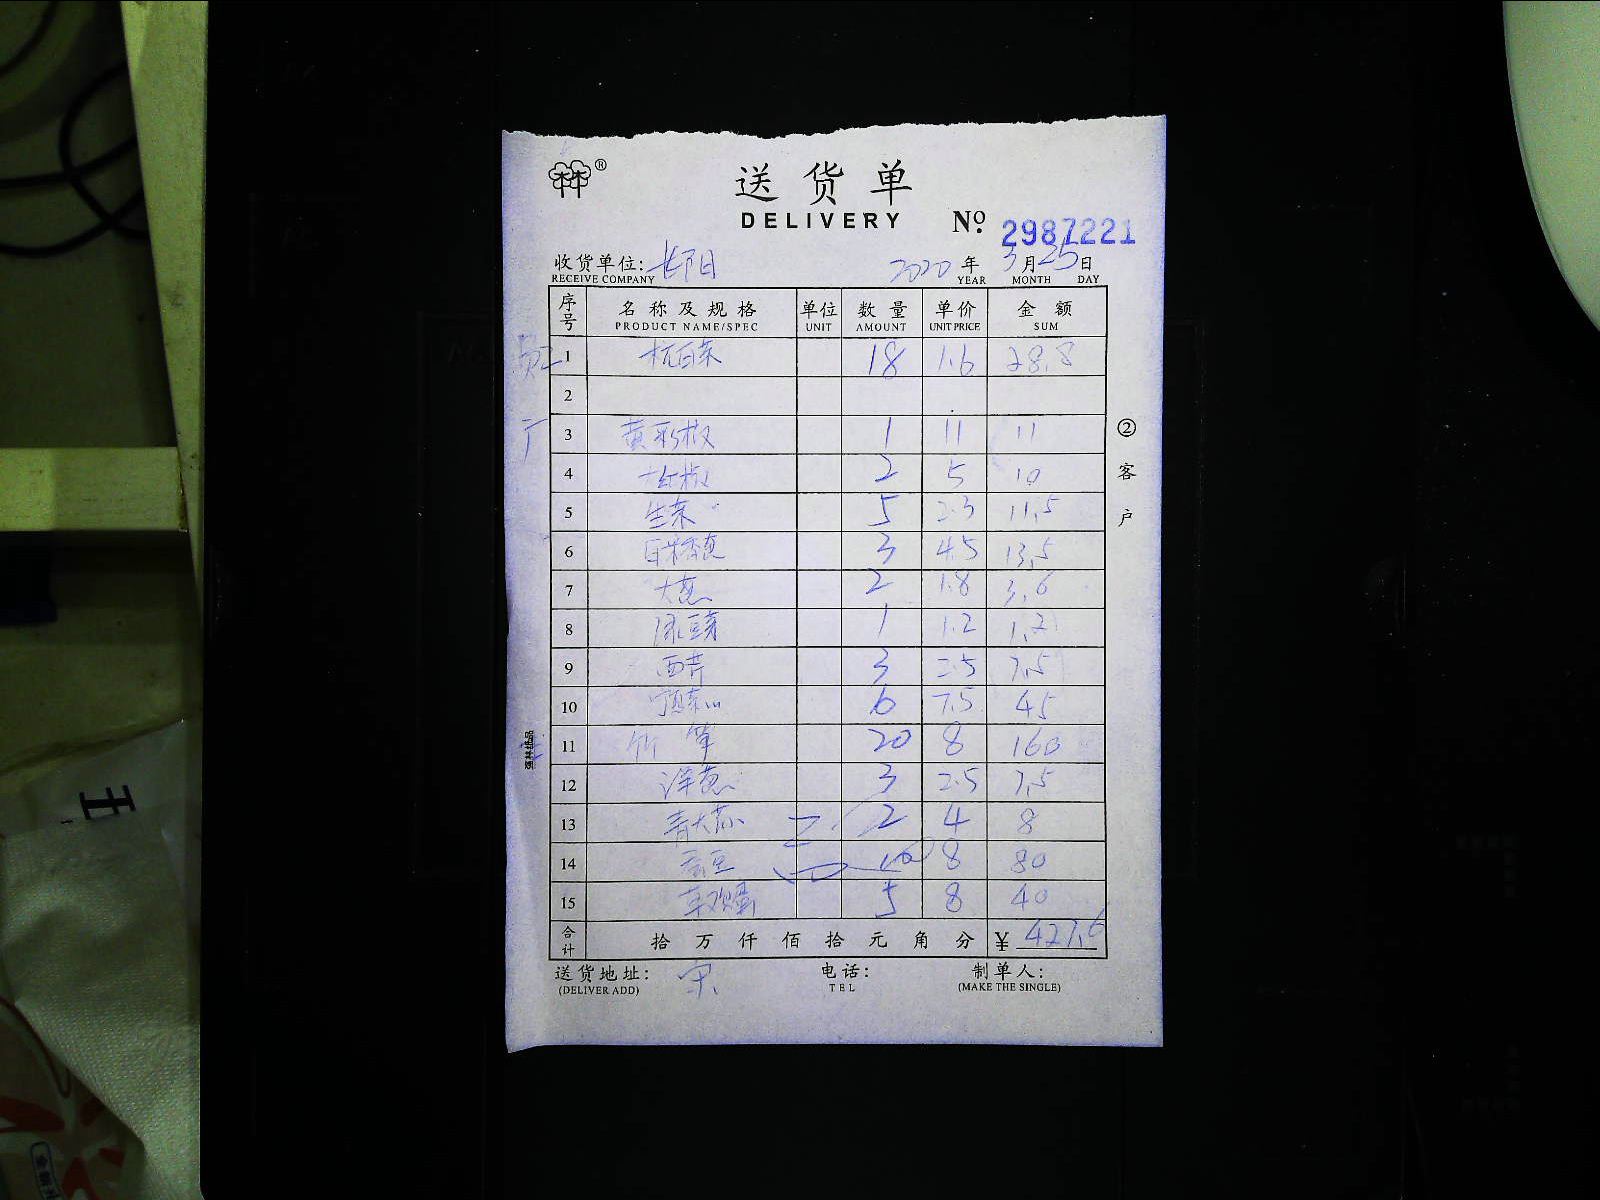 ®
送货单
DELIVERY
Nº 2987221
收货单位: 长阳 2020 年 3 月 25 日
RECEIVE COMPANY YEAR MONTH DAY
序号 名称及规格 单位 数量 单价 金额
PRODUCT NAME/SPEC UNIT AMOUNT UNIT PRICE SUM
员工 1 杭白菜 18 1.6 28.8
2
厂 3 黄彩椒 1 11 11
4 大红椒 2 5 10
5 生菜 5 2.3 11.5
6 白米香葱 3 4.5 13.5
7 大葱 2 1.8 3.6
8 绿豆芽 1 1.2 1.2
9 西芹 3 2.5 7.5
10 6 7.5 45
11 竹笋 20 8 160
12 洋葱 3 2.5 7.5
13 青大蒜 2 4 8
14 芸豆 10 8 80
15 5 8 40
合计 拾 万 仟 佰 拾 元 角 分 ¥ 427.6
送货地址: 宋 电话: 制单人:
(DELIVER ADD) TEL (MAKE THE SINGLE)
②客户